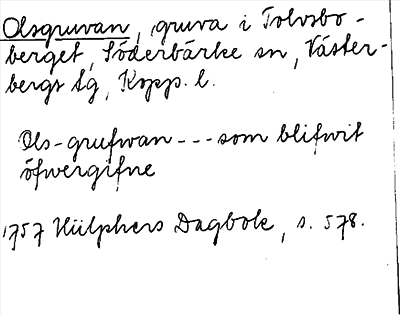 Olsgruvan, gruva i Tolvsbo-
berget, Söderbärke sn, Väster-
bergs lg, Kopp. l.
Ols-grufwan --- som blifwit
öfwergifne
1757 Hülphers Dagbok, s. 578.